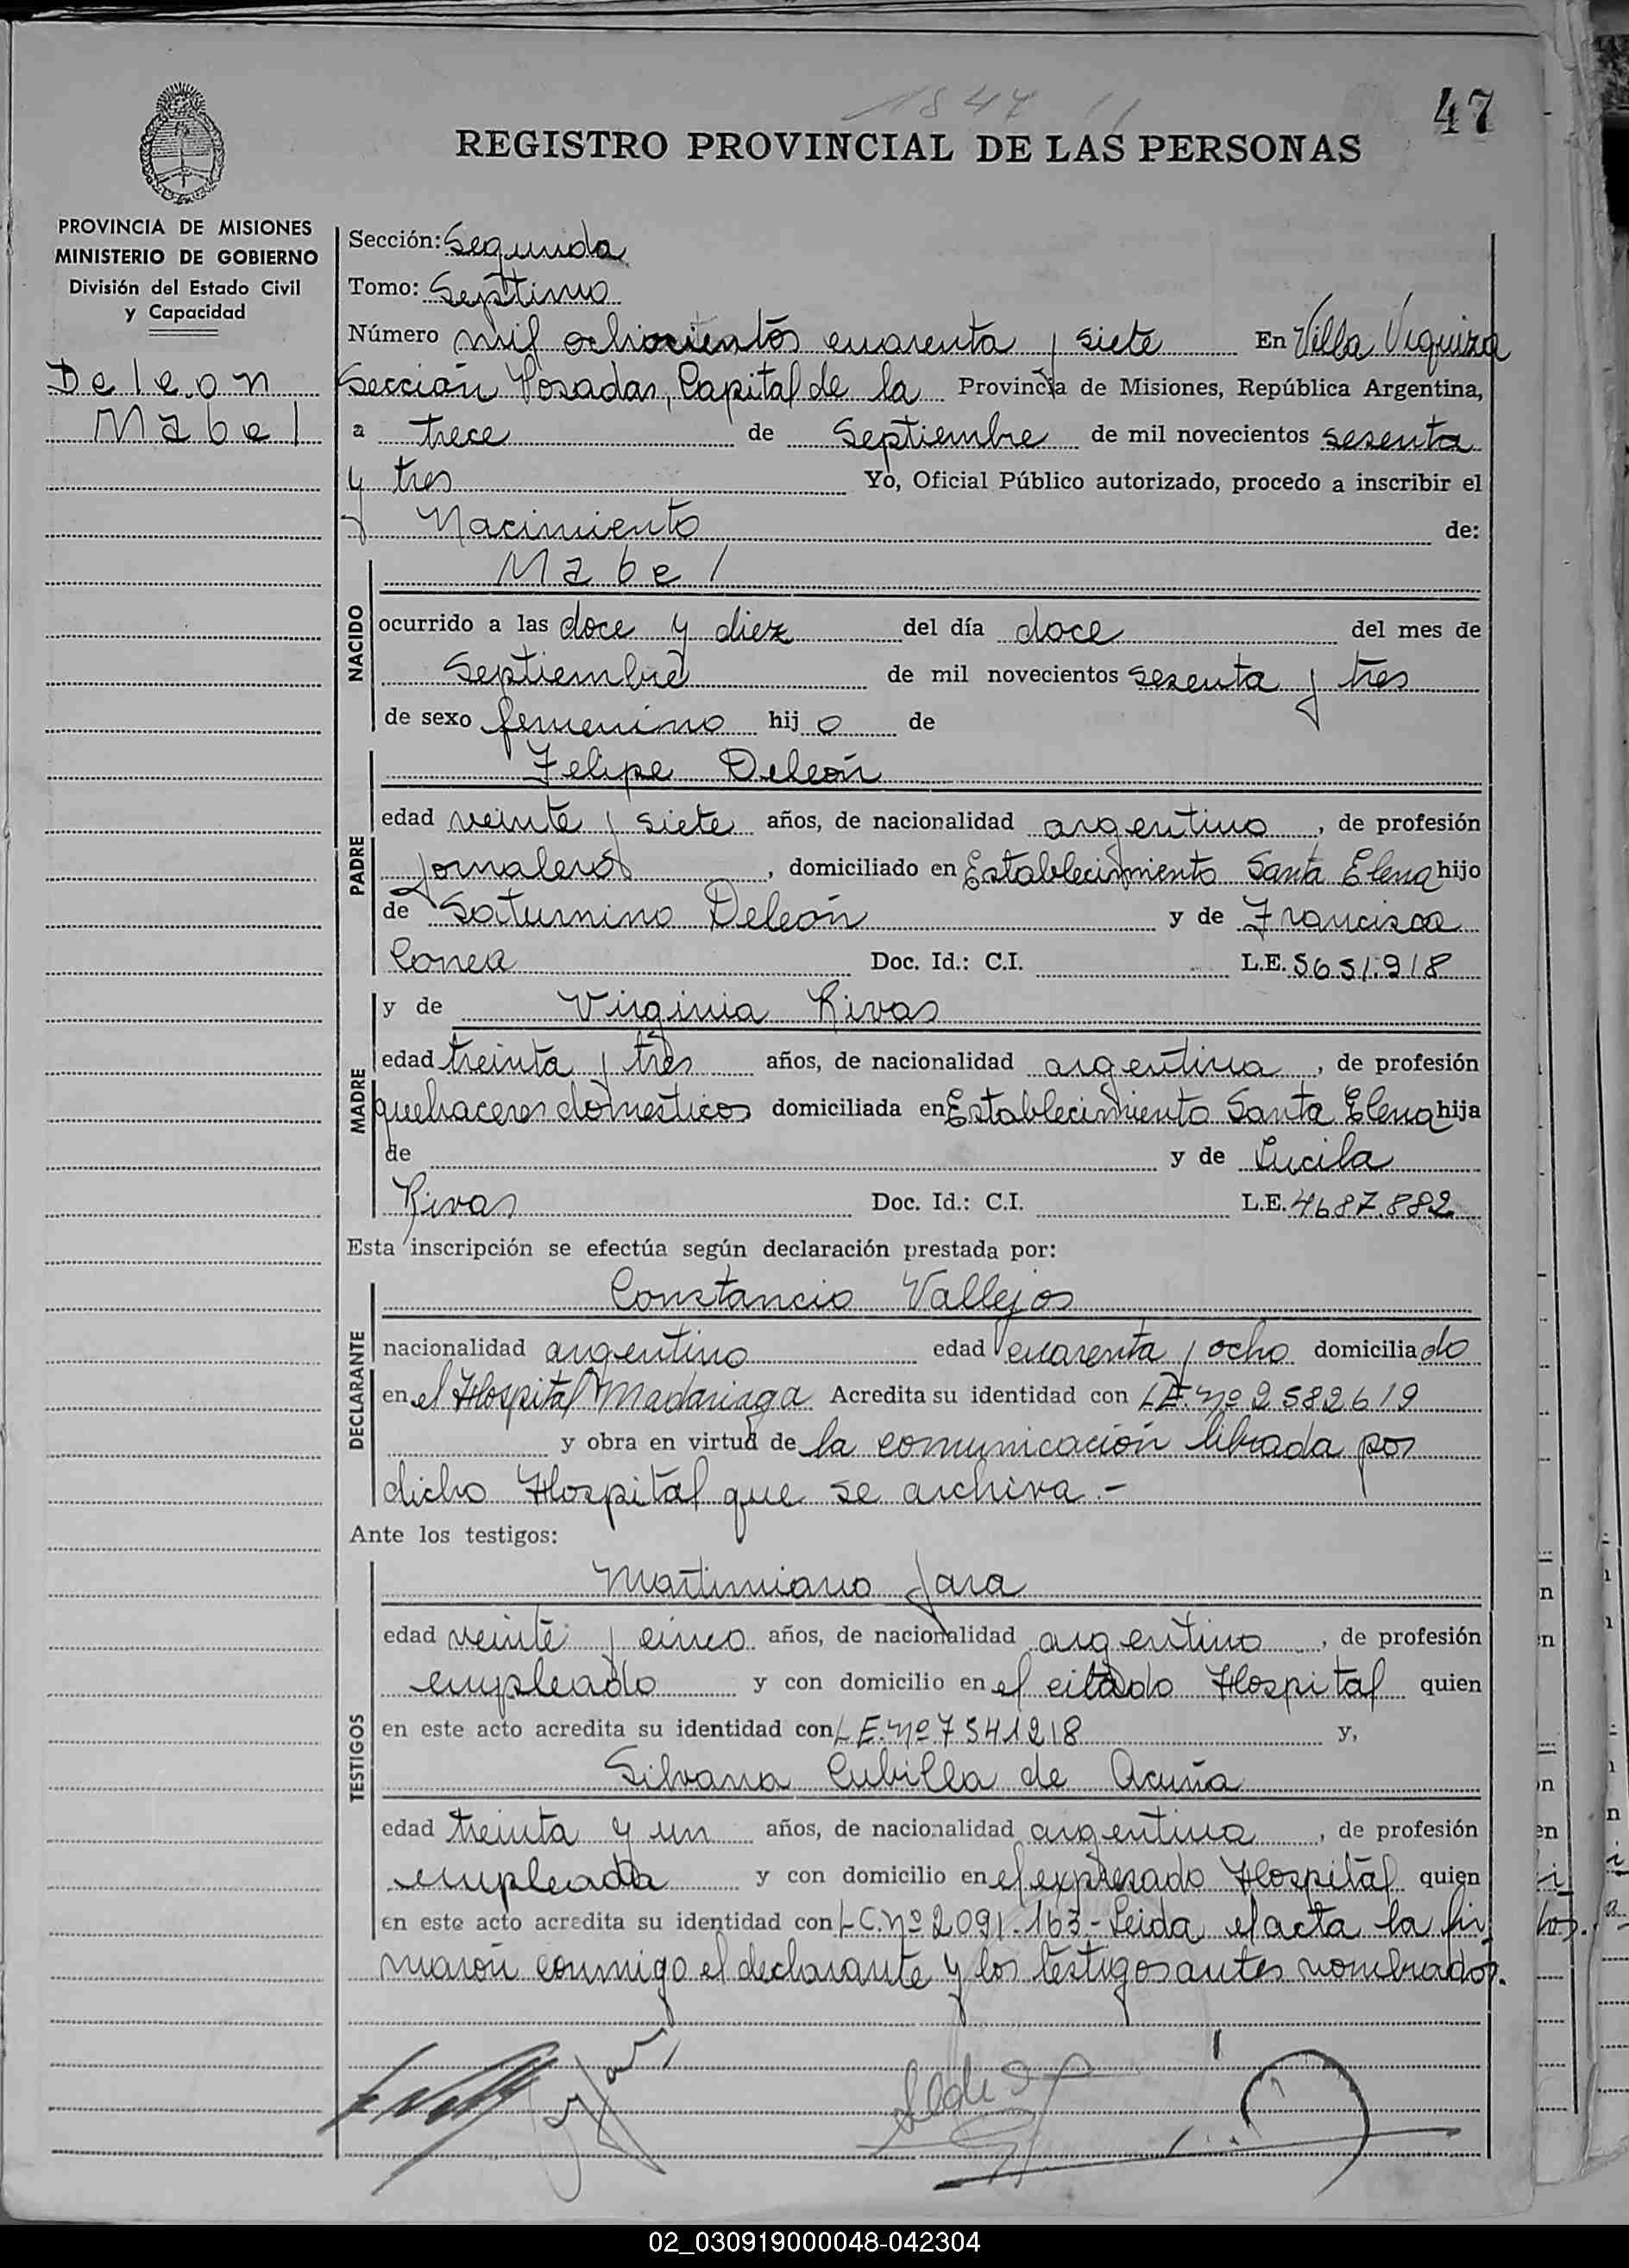 1847
47
REGISTRO PROVINCIAL DE LAS PERSONAS
PROVINCIA DE MISIONES
MINISTERIO DE GOBIERNO
División del Estado Civil
y Capacidad
Deleon
Mabel
Sección: Segunda
Tomo: Septimo
Número mil ochocientos cuarenta y siete En Villa Urquiza
Sección Posadas, Capital de la Provincia de Misiones, República Argentina,
a trece de Septiembre de mil novecientos sesenta
y tres Yo, Oficial Público autorizado, procedo a inscribir el
Nacimiento de:
NACIDO
Mabel
ocurrido a las doce y diez del día doce del mes de
Septiembre de mil novecientos sesenta y tres
de sexo femenino hijo de
PADRE
Felipe Deleón
edad veinte y siete años, de nacionalidad argentino, de profesión
jornalero, domiciliado en Establecimiento Santa Elena hijo
de Saturnino Deleón y de Francisca
Doc. Id.: C.I. L.E. 5651.918
MADRE
y de Virginia Rivas
edad treinta y tres años, de nacionalidad argentina, de profesión
quehaceres domesticos domiciliada en Establecimiento Santa Elena hija
de y de Lucila
Rivas Doc. Id.: C.I. L.E. 4687.882
Esta inscripción se efectúa según declaración prestada por:
DECLARANTE
Constancio Vallejos
nacionalidad argentino edad cuarenta y ocho domiciliado
en el Hospital Madariaga Acredita su identidad con L.E. Nº 2582619
y obra en virtud de la comunicación librada por
dicho Hospital que se archiva.-
Ante los testigos:
TESTIGOS
Martimiano Jara
edad veinte y cinco años, de nacionalidad argentino, de profesión
empleado y con domicilio en el citado Hospital quien
en este acto acredita su identidad con L.E. Nº 7541218 y,
Silvana Cubilla de Acuña
edad treinta y un años, de nacionalidad argentina, de profesión
empleada y con domicilio en el expresado Hospital quien
en este acto acredita su identidad con L.C. Nº 2091.163- Leida el acta la fir
maron conmigo el declarante y los testigos antes nombrados.
02_030919000048-042304